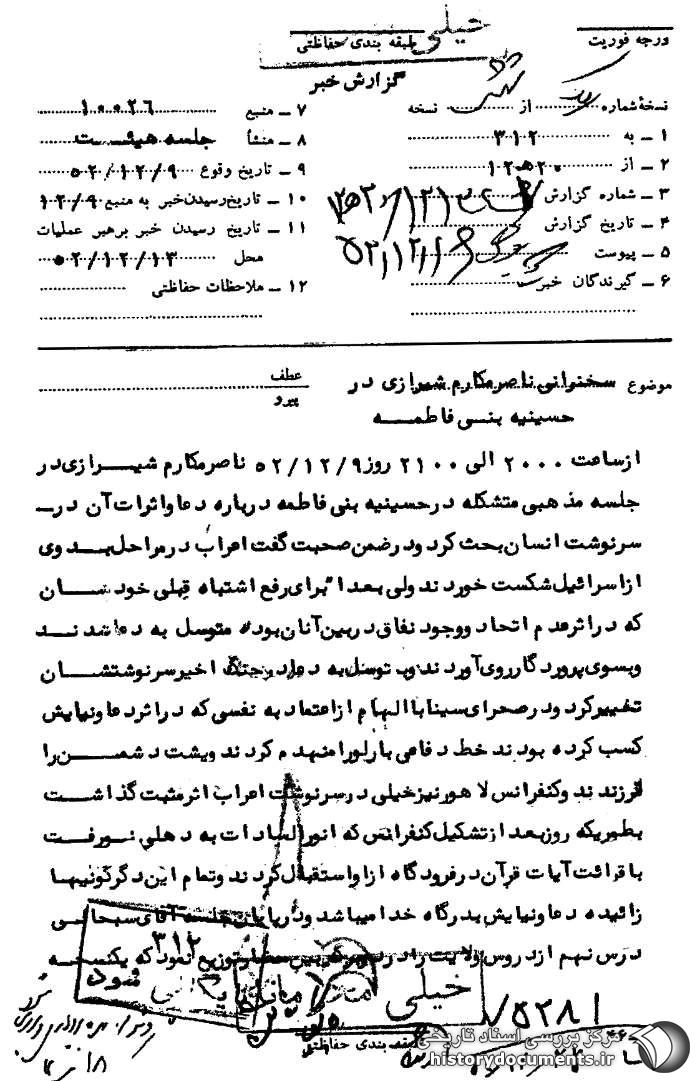 خیلی
طبقه بندی حفاظتی
درجه فوریت
گزارش خبر
نسخهٔ شماره از نسخه
۱ ـ به ۳۱۲
۲ ـ از ۱۲ﻫ۲۰
۳ ـ شماره گزارش
۴ ـ تاریخ گزارش
۵ ـ پیوست
۶ ـ گیرندگان خبر
۷ ـ منبع ۱۰۰۲۶
۸ ـ منشأ جلسه هیئت
۹ ـ تاریخ وقوع ۵۲/۱۲/۹
۱۰ ـ تاریخ رسیدن خبر به منبع ۱۲/۹
۱۱ ـ تاریخ رسیدن خبر برهبر عملیات
محل ۵۲/۱۲/۱۳
۱۲ ـ ملاحظات حفاظتی
موضوع سخنرانی ناصرمکارم شیرازی در
حسینیه بنی فاطمه
عطف
پیرو
ازساعت ۲۰۰۰ الی ۲۱۰۰ روز ۵۲/۱۲/۹ ناصرمکارم شیرازی در
جلسه مذهبی متشکله درحسینیه بنی فاطمه درباره دعا واثرات آن در
سرنوشت انسان بحث کرد ودرضمن صحبت گفت اعراب درمراحل بدوی
ازاسرائیل شکست خوردند ولی بعدا" برای رفع اشتباه قبلی خودشان
که دراثرعدم اتحاد ووجود نفاق دربین آنان بوده متوسل به دعا شدند
وبسوی پروردگارروی آوردند وبا توسل به دعا درجنگ اخیرسرنوشتشان
تغییرکرد ودرصحرای سینا با الهام ازاعتماد به نفسی که دراثردعا ونیایش
کسب کرده بودند خط دفاعی بارلورا منهدم کردند وپشت دشمن را
لرزندند وکنفرانس لاهورنیزخیلی درسرنوشت اعراب اثرمثبت گذاشت
بطوریکه روزبعد ازتشکیل کنفرانس که انورالسادات به دهلی نورفت
با قرائت آیات قرآن درفرودگاه ازاواستقبال کردند وتمام این دگرگونیها
زائیده دعا ونیایش بدرگاه خدا میباشد ودرپایان جلسه آقای سبحانی
درس نهم ازدروس ولایت را دربین حضارتوزیع نمود که یکنسخه
۳۱۲
خیلی
طبقه بندی حفاظتی
مرکز بررسی اسناد تاریخی
historydocuments.ir